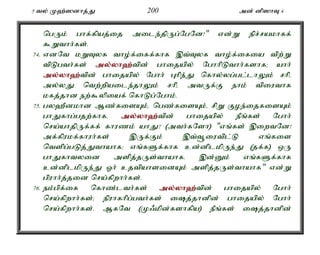 5 வல் முஹ்ஸனாத்து 200 அன் னிஸாவு 4
பெரும் பாக்கியத்தை அடைந்திருப்பேனே!" என்று நிச்சயமாகக்
கூறுவார்கள்.
74. எனவே மறுவுலக வாழ்க்கைக்காக இவ்வுலக வாழ்க்கையை விற்று
விடுபவர்கள் அல்லாஹ்வின் பாதையில் போரிடுவார்களாக; யார்
அல்லாஹ்வின் பாதையில் போர் புரிந்து கொல்லப்பட்டாலும் சரி,
அல்லது வெற்றியடைந்தாலும் சரி, அவருக்கு நாம் விரைவாக
மகத்தான நற்கூலியைக் கொடுப்போம்.
75. பலஹீனமான ஆண்களையும், பெண்களையும், சிறு குழந்தைகளையும்
பாதுகாப்பதற்காக, அல்லாஹ்வின் பாதையில் நீங்கள் போர்
செய்யாதிருக்கக் காரணம் யாது? (அவர்களோ) "எங்கள் இறைவனே!
அக்கிரமக்காரர்கள் இருக்கும் இவ்வூரைவிட்டு எங்களை
வெளிப்படுத்துவாயாக; எங்களுக்காக உன்னிடமிருந்து (தக்க) ஒரு
பாதுகாவலனை அளித்தருள்வாயாக; இன்னும் எங்களுக்காக
உன்னிடமிருந்து ஓர் உதவியாளனையும் அளித்தருள்வாயாக" என்று
பிரார்த்தனை செய்கிறார்கள்.
76. நம்பிக்கை கொண்டவர்கள் அல்லாஹ்வின் பாதையில் போர்
செய்கிறார்கள்; நிராகரிப்பவர்கள் ஷைத்தானின் பாதையில் போர்
செய்கிறார்கள்; ஆகவே (முஃமின்களாகிய) நீங்கள் ஷைத்தானின்